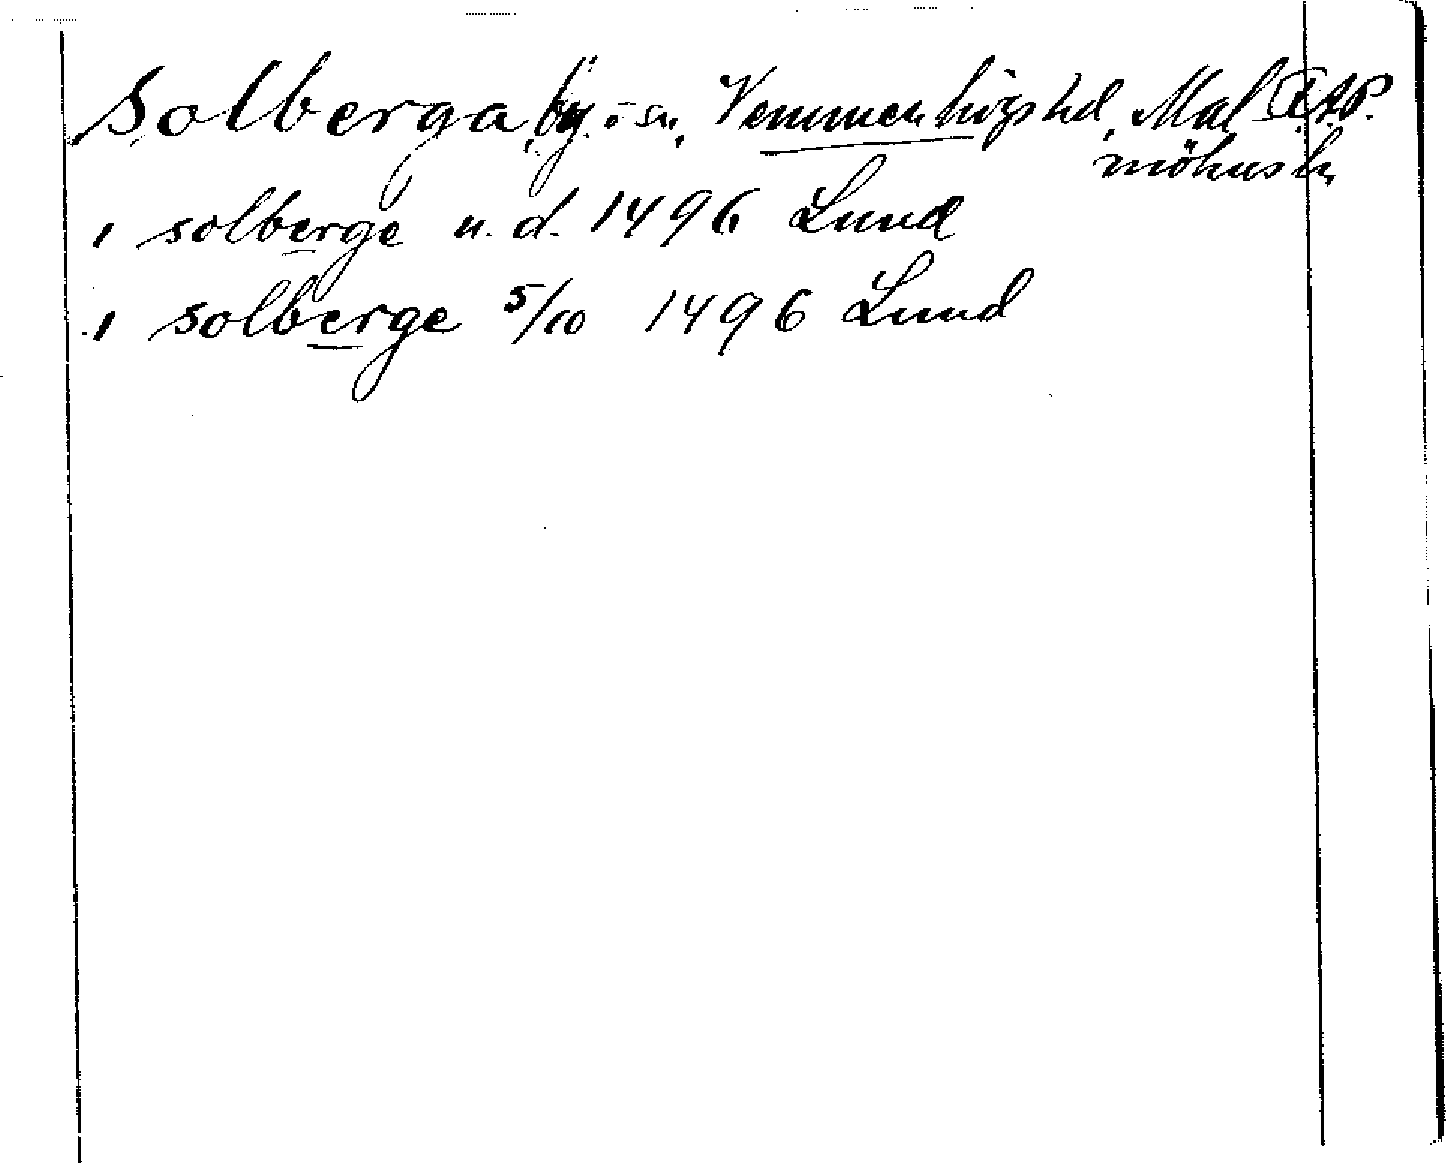 Solberga, by. o sn., Vemmenhögs hd, Mal
möhus l.
1 solberge u. d. 1496 Lund
1 solberge 5/10 1496 Lund